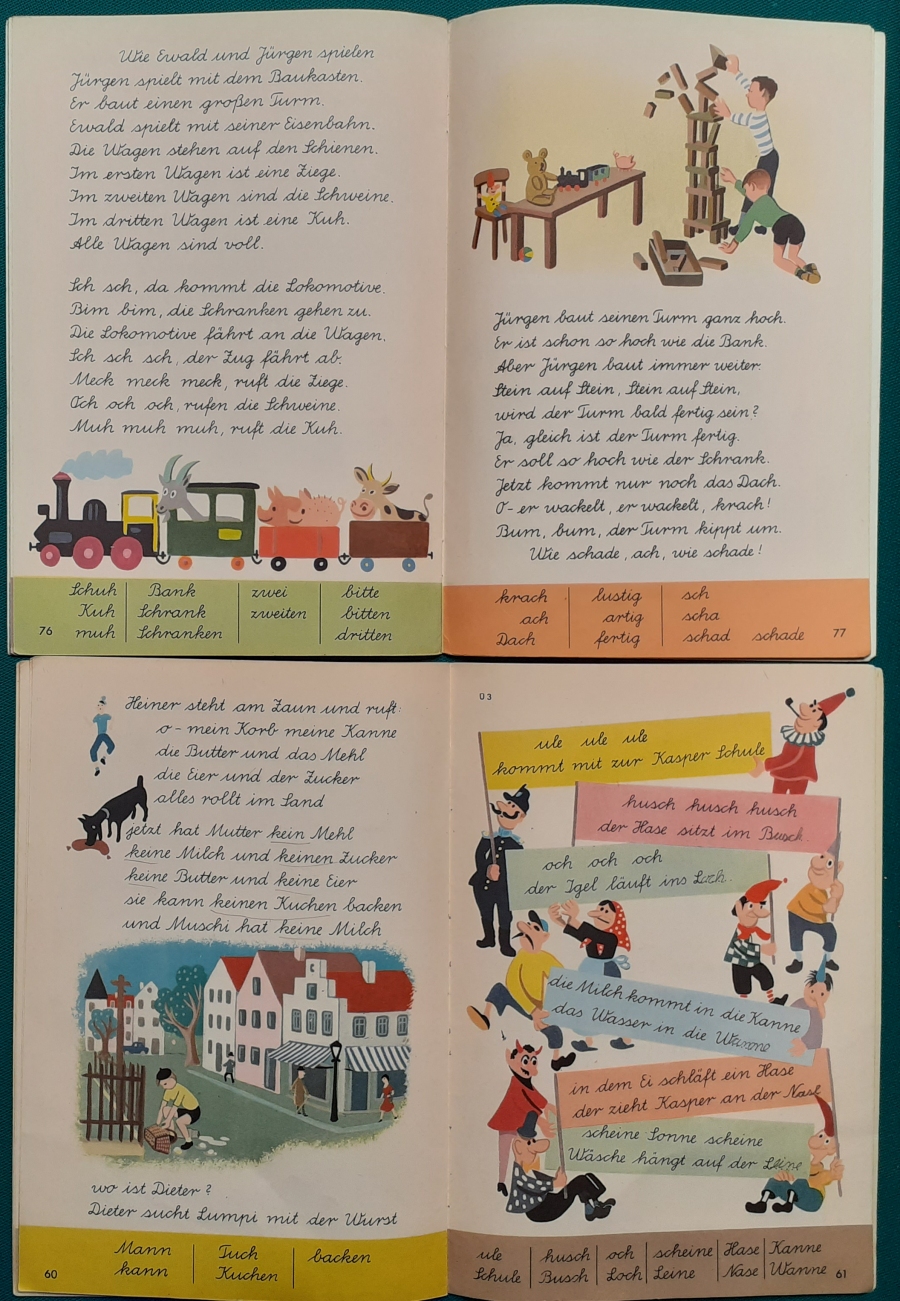 Wie Ewald und Jürgen spielen
Jürgen spielt mit dem Baukasten.
Er baut einen großen Turm.
Ewald spielt mit seiner Eisenbahn.
Die Wagen stehen auf den Schienen.
Im ersten Wagen ist eine Ziege.
Im zweiten Wagen sind die Schweine.
Im dritten Wagen ist eine Kuh.
Alle Wagen sind voll.
Sch sch, da kommt die Lokomotive.
Bim bim, die Schranken gehen zu.
Die Lokomotive fährt an die Wagen.
Sch sch sch, der Zug fährt ab.
Meck meck meck, ruft die Ziege.
Och och och, rufen die Schweine.
Muh muh muh, ruft die Kuh.
Schuh Bank zwei bitte
Kuh Schrank zweiten bitten
muh Schranken dritten
76
Jürgen baut seinen Turm ganz hoch.
Er ist schon so hoch wie die Bank.
Aber Jürgen baut immer weiter.
Stein auf Stein, Stein auf Stein,
wird der Turm bald fertig sein?
Ja, gleich ist der Turm fertig.
Er soll so hoch wie der Schrank.
Jetzt kommt nur noch das Dach.
O- er wackelt, er wackelt, krach!
Bum, bum, der Turm kippt um.
Wie schade, ach, wie schade!
krach lustig sch
ach artig scha
Dach fertig schad schade
77
Heiner steht am Zaun und ruft:
o- mein Korb meine Kanne
die Butter und das Mehl
die Eier und der Zucker
alles rollt im Sand
jetzt hat Mutter kein Mehl
keine Milch und keinen Zucker
keine Butter und keine Eier
sie kann keinen Kuchen backen
und Muschi hat keine Milch
wo ist Dieter?
Dieter sucht Lumpi mit der Wurst
Mann Tuch backen
kann Kuchen
60
03
ule ule ule
kommt mit zur Kasper Schule
husch husch husch
der Hase sitzt im Busch.
och och och
der Igel läuft ins Loch.
die Milch kommt in die Kanne
das Wasser in die Wanne
in dem Ei schläft ein Hase
der zieht Kasper an der Nase
scheine Sonne scheine
Wäsche hängt auf der Leine
ule husch och scheine Hase Kanne
Schule Busch Loch Leine Nase Wanne
61